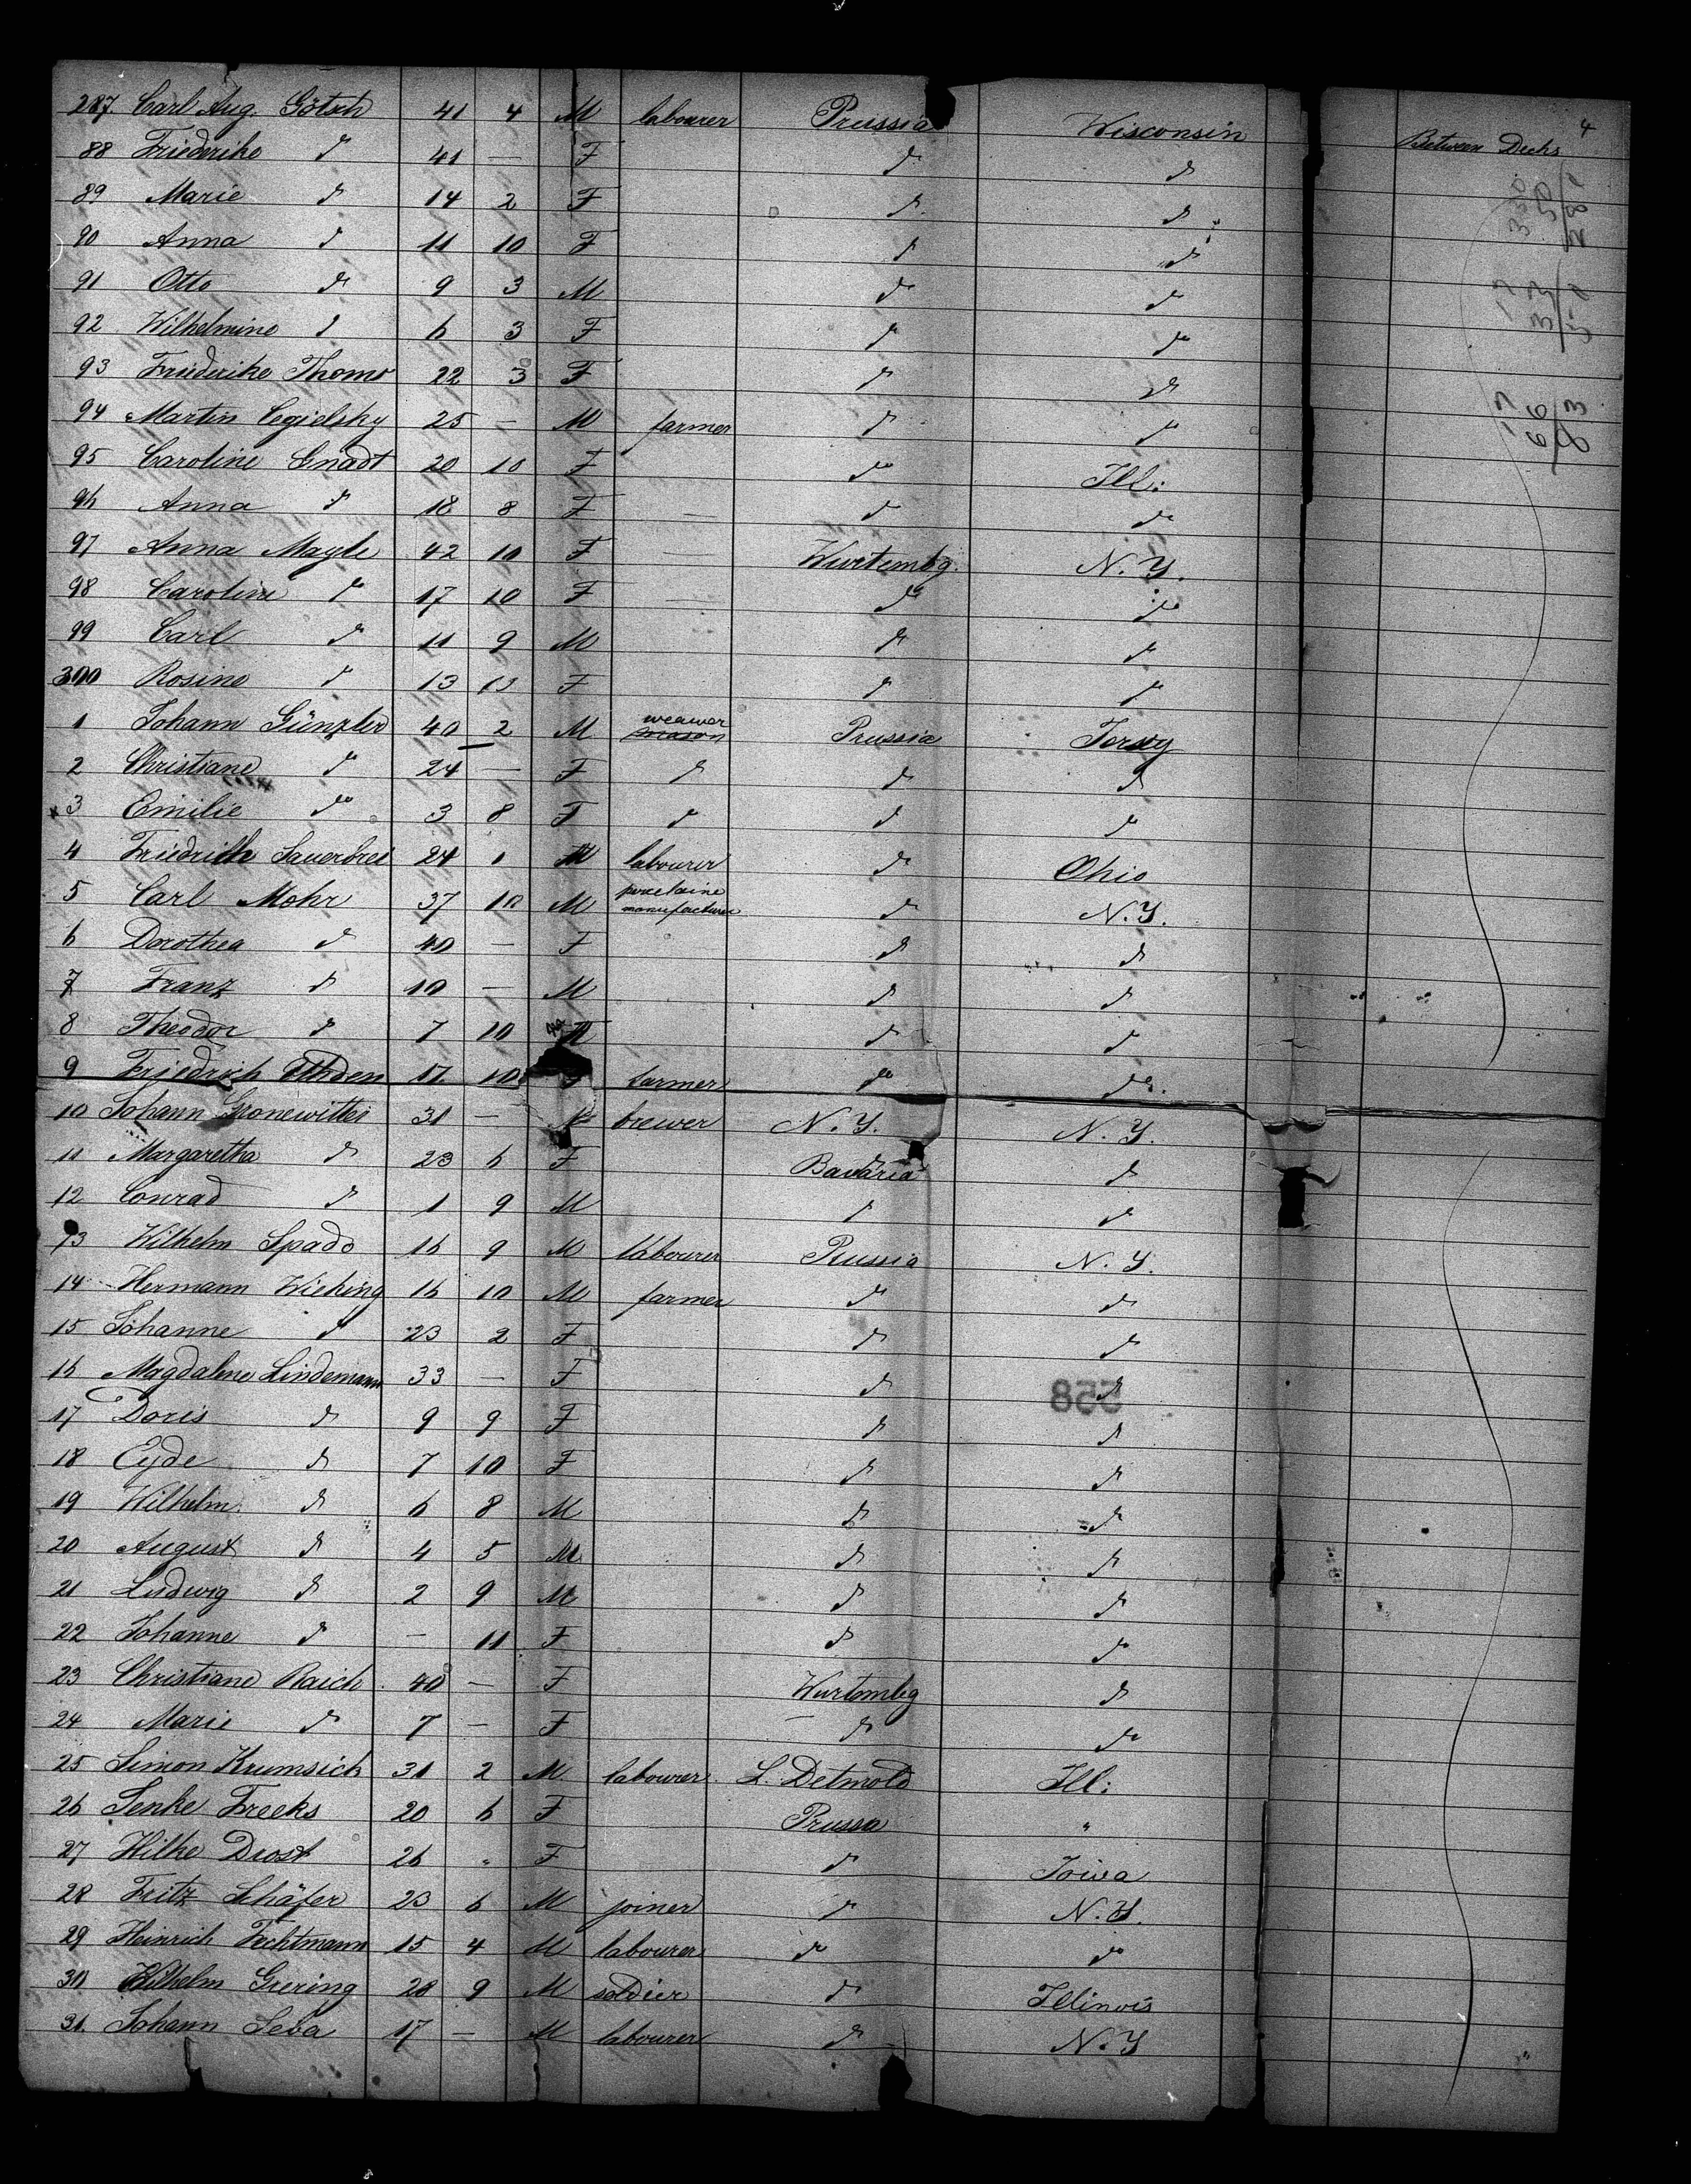 4
287. Carl Aug. Götsch 41 4 M labourer Prussia Wisconsin Between Decks
88 Friederike d 41 — F d d
89 Marie d 14 2 F d d
90 Anna d 11 10 F d d
91 Otto d 9 3 M d d
92 Wilhelmine d 6 3 F d d
93 Friederike Thoms 22 3 F d d
94 Martin Cegielsky 25 — M farmer d d
95 Caroline Gnadt 20 10 F do Ill:
96 Anna d 18 8 F — d do
97 Anna Mayle 42 10 F — Wurtembg. N. Y.
98 Caroline d 17 10 F do do
99 Carl d 11 9 M d do
300 Rosine d 13 10 F d d
1 Johann Günzler 40 2 M weawer Prussia Jersey
2 Christiane d 24 — F d d d
3 Emilie do 3 8 F d d d
4 Friedrich Sauerbrei 24 1 M labourer d Ohio
5 Carl Mohr 37 10 M porcelaine manufacturer d N. Y.
6 Dorothea d 40 — F d d
7 Franz d 10 — M d d
8 Theodor d 7 10 M d d
9 Friedrich 17 10 farmer do do.
10 Johann Gronewitter 31 — brewer N. Y. N. Y.
11 Margaretha d 23 6 F Bavaria d
12 Conrad d 1 9 M d d
13 Wilhelm Spado 16 9 M labourer Prussia N. Y.
14 Hermann Wieking 16 10 M farmer d d
15 Johanne d 23 2 F d d
16 Magdalene Lindemann 33 — F d d
558
17 Doris d 9 9 F d d
18 Eyde d 7 10 F d d
19 Wilhelm d 6 8 M d d
20 August d 4 5 M d d
21 Ludwig d 2 9 M d d
22 Johanne d — 11 F d d
23 Christiane Raich 40 — F Wurtembg d
24 Marie d 7 — F d do
25 Simon Krumsich 31 2 M labourer L. Detmold Ill:
26 Senke Freeks 20 6 F Prussa "
27 Hilke Drost 26 " F d Joiwa
28 Fritz Schäfer 23 6 M joiner d N. Y.
29 Heinrich Fechtmann 15 4 M labourer do do
30 Wilhelm Grering 28 9 M soldier d Illinois
31. Johann Seba 17 — M labourer d N. Y